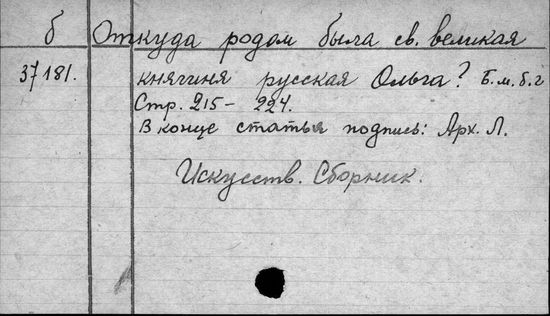 б Откуда родом была св. великая
37181. княгиня русская Ольга? Б.м.б.г
Стр. 215-224.
В конце статьи подпись: Арх. Л.
Искусств. Сборник.